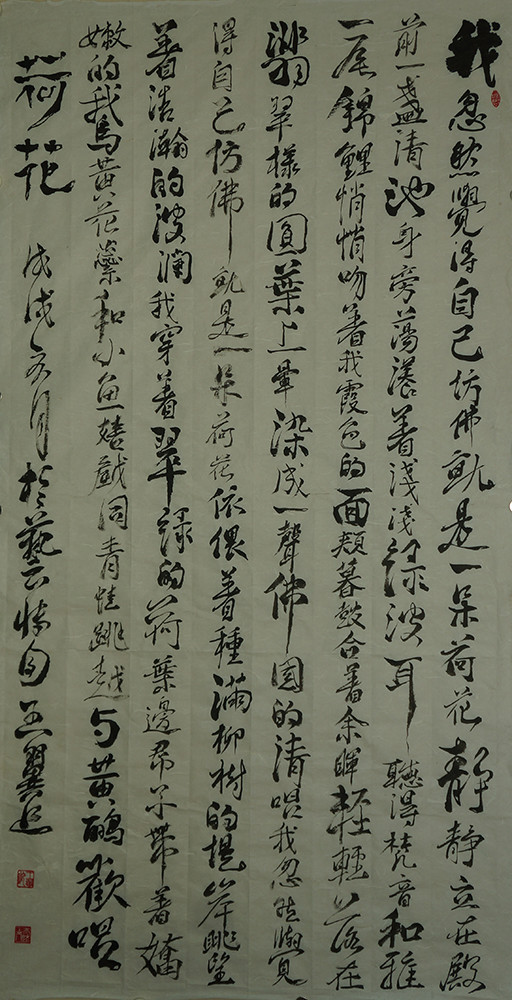 我忽然覺得自己仿佛就是一朵荷花靜靜立在殿
前一盞清池身旁蕩漾着淺淺綠波耳聽得梵音和雅
一尾錦鯉悄悄吻着我霞色的面頰暮鼓合着余暉輕輕落在
翡翠樣的圓葉上暈染成一聲佛國的清唱我忽然覺
得自己仿佛就是一朵荷花依偎着種滿柳樹的堤岸眺望
着浩瀚的波瀾我穿着翠綠的荷葉邊群衣帶着嬌
嫩的鵝黃花蕊和小魚嬉戲同青蛙跳越與黃鸝歡唱
荷花
戊戌 月於藝云 自 王翼